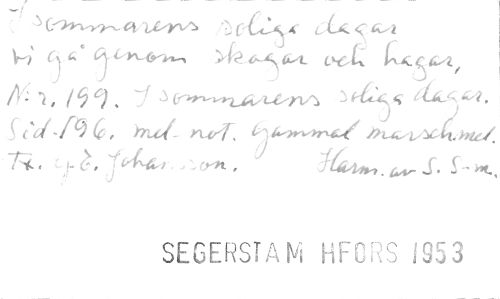 I sommarens soliga dagar
vi gå genom skogar och hagar,
N:r. 199. I sommarens soliga dagar.
Sid. 196. mel. not. Gammal marschmel.
Tx. G. E. Johansson. Harm. av S. S-m.
SEGERSTAM HFORS 1953